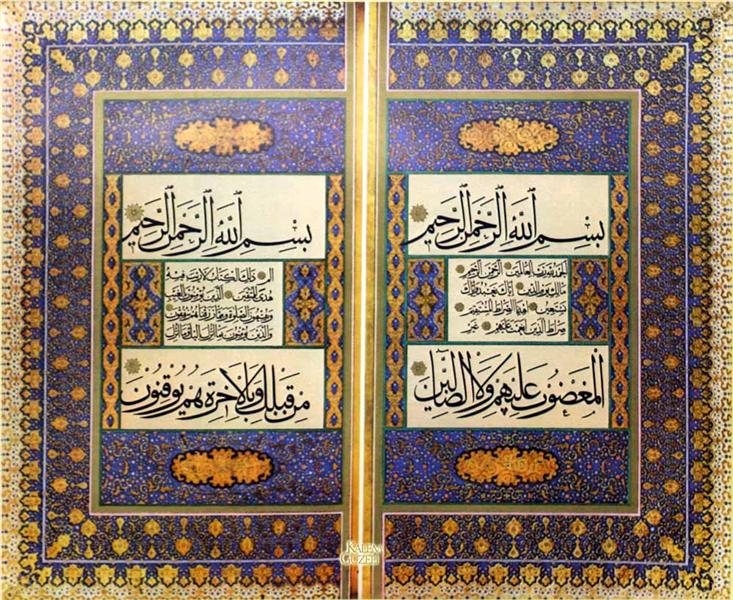 بسم الله الرحمن الرحيم
الحمد لله رب العالمين الرحمن الرحيم
مالك يوم الدين اياك نعبد واياك
نستعين اهدنا الصراط المستقيم
صراط الذين انعمت عليهم غير
المغضوب عليهم ولا الضالين
بسم الله الرحمن الرحيم
الم ذلك الكتاب لا ريب فيه
هدى للمتقين الذين يؤمنون بالغيب
ويقيمون الصلوة ومما رزقناهم ينفقون
والذين يؤمنون بما انزل اليك وما انزل
من قبلك وبالاخرة هم يوقنون
KALEM
GÜZELİ